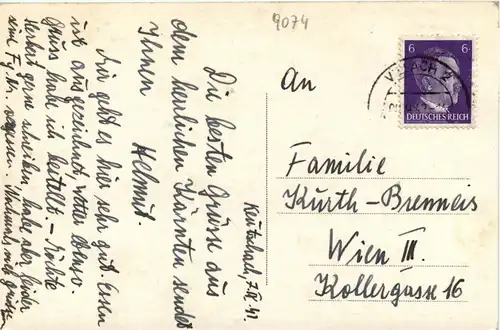 9074
6 6
DEUTSCHES REICH
VILLACH 2
An
Familie
Kurth-Brenneis
Wien III.
Kollergasse 16
Keutschach, 7. IX. 41.
Die besten Grüsse aus
dem herrlichen Kärnten sendet
Ihnen
Helmut.
Mir geht es hier sehr gut. Essen
ist ausgezeichnet, Wetter ebenso.
Gruss habe ich bestellt. – Möchte
Herbert gerne schreiben, habe aber leider
seine Fp. Nr. vergessen.